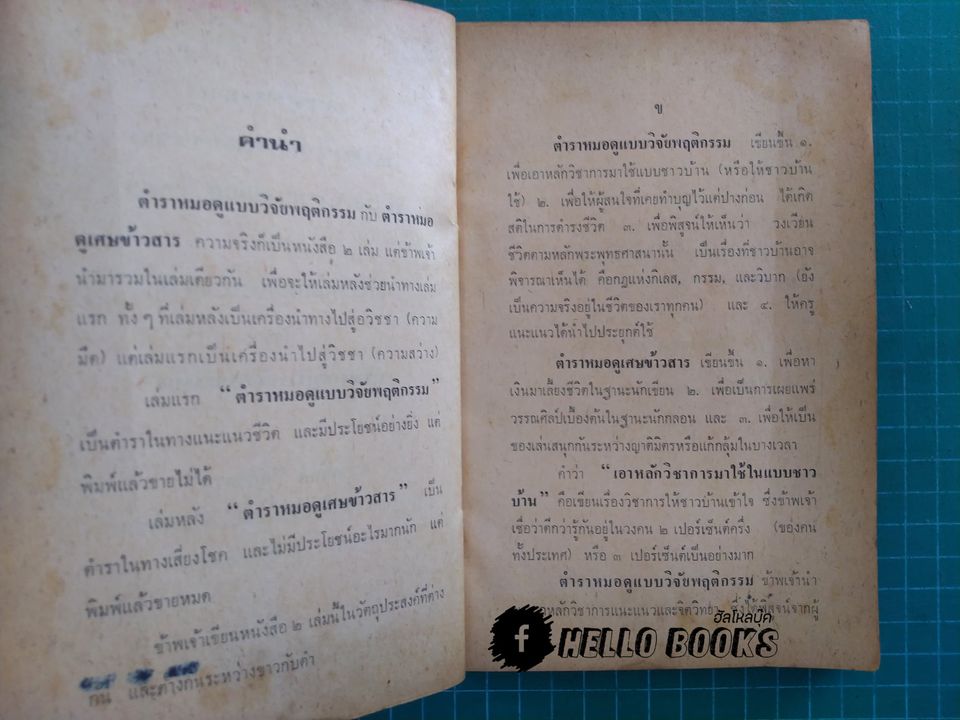 คำนำ
ตำราหมอดูแบบวิจัยพฤติกรรม กับ ตำราหมอ
ดูเศษข้าวสาร ความจริงก็เป็นหนังสือ ๒ เล่ม แต่ข้าพเจ้า
นำมารวมในเล่มเดียวกัน เพื่อจะให้เล่มหลังช่วยนำทางเล่ม
แรก ทั้ง ๆ ที่เล่มหลังเป็นเครื่องนำทางไปสู่อวิชชา (ความ
มืด) แต่เล่มแรกเป็นเครื่องนำไปสู่วิชชา (ความสว่าง)
เล่มแรก “ตำราหมอดูแบบวิจัยพฤติกรรม”
เป็นตำราในทางแนะแนวชีวิต และมีประโยชน์อย่างยิ่ง แต่
พิมพ์แล้วขายไม่ได้
เล่มหลัง “ตำราหมอดูเศษข้าวสาร” เป็น
ตำราในทางเสี่ยงโชค และไม่มีประโยชน์อะไรมากนัก แต่
พิมพ์แล้วขายหมด
ข้าพเจ้าเขียนหนังสือ ๒ เล่มนี้ในวัตถุประสงค์ที่ต่าง
กัน และต่างกันระหว่างขาวกับดำ
ข
ตำราหมอดูแบบวิจัยพฤติกรรม เขียนขึ้น ๑.
เพื่อเอาหลักวิชาการมาใช้แบบชาวบ้าน (หรือให้ชาวบ้าน
ใช้) ๒. เพื่อให้ผู้สนใจที่เคยทำบุญไว้แต่ปางก่อน ได้เกิด
สติในการดำรงชีวิต ๓. เพื่อพิสูจน์ให้เห็นว่า วงเวียน
ชีวิตตามหลักพระพุทธศาสนานั้น เป็นเรื่องที่ชาวบ้านอาจ
พิจารณาเห็นได้ คือกฎแห่งกิเลส, กรรม, และวิบาก (ยัง
เป็นความจริงอยู่ในชีวิตของเราทุกคน) และ ๔. ให้ครู
แนะแนวได้นำไปประยุกต์ใช้
ตำราหมอดูเศษข้าวสาร เขียนขึ้น ๑. เพื่อหา
เงินมาเลี้ยงชีวิตในฐานะนักเขียน ๒. เพื่อเป็นการเผยแพร่
วรรณศิลป์เบื้องต้นในฐานะนักกลอน และ ๓. เพื่อให้เป็น
ของเล่นสนุกกันระหว่างญาติมิตรหรือแก้กลุ้มในบางเวลา
คำว่า “เอาหลักวิชาการมาใช้ในแบบชาว
บ้าน” คือเขียนเรื่องวิชาการให้ชาวบ้านเข้าใจ ซึ่งข้าพเจ้า
เชื่อว่าดีกว่ารู้กันอยู่ในวงคน ๒ เปอร์เซ็นต์ครึ่ง (ของคน
ทั้งประเทศ) หรือ ๓ เปอร์เซ็นต์เป็นอย่างมาก
ตำราหมอดูแบบวิจัยพฤติกรรม ข้าพเจ้านำ
เอาหลักวิชาการแนะแนวและจิตวิทยา ซึ่งได้พิสูจน์จากผู้
ฮัลโหลบุ๊ค
f HELLO BOOKS